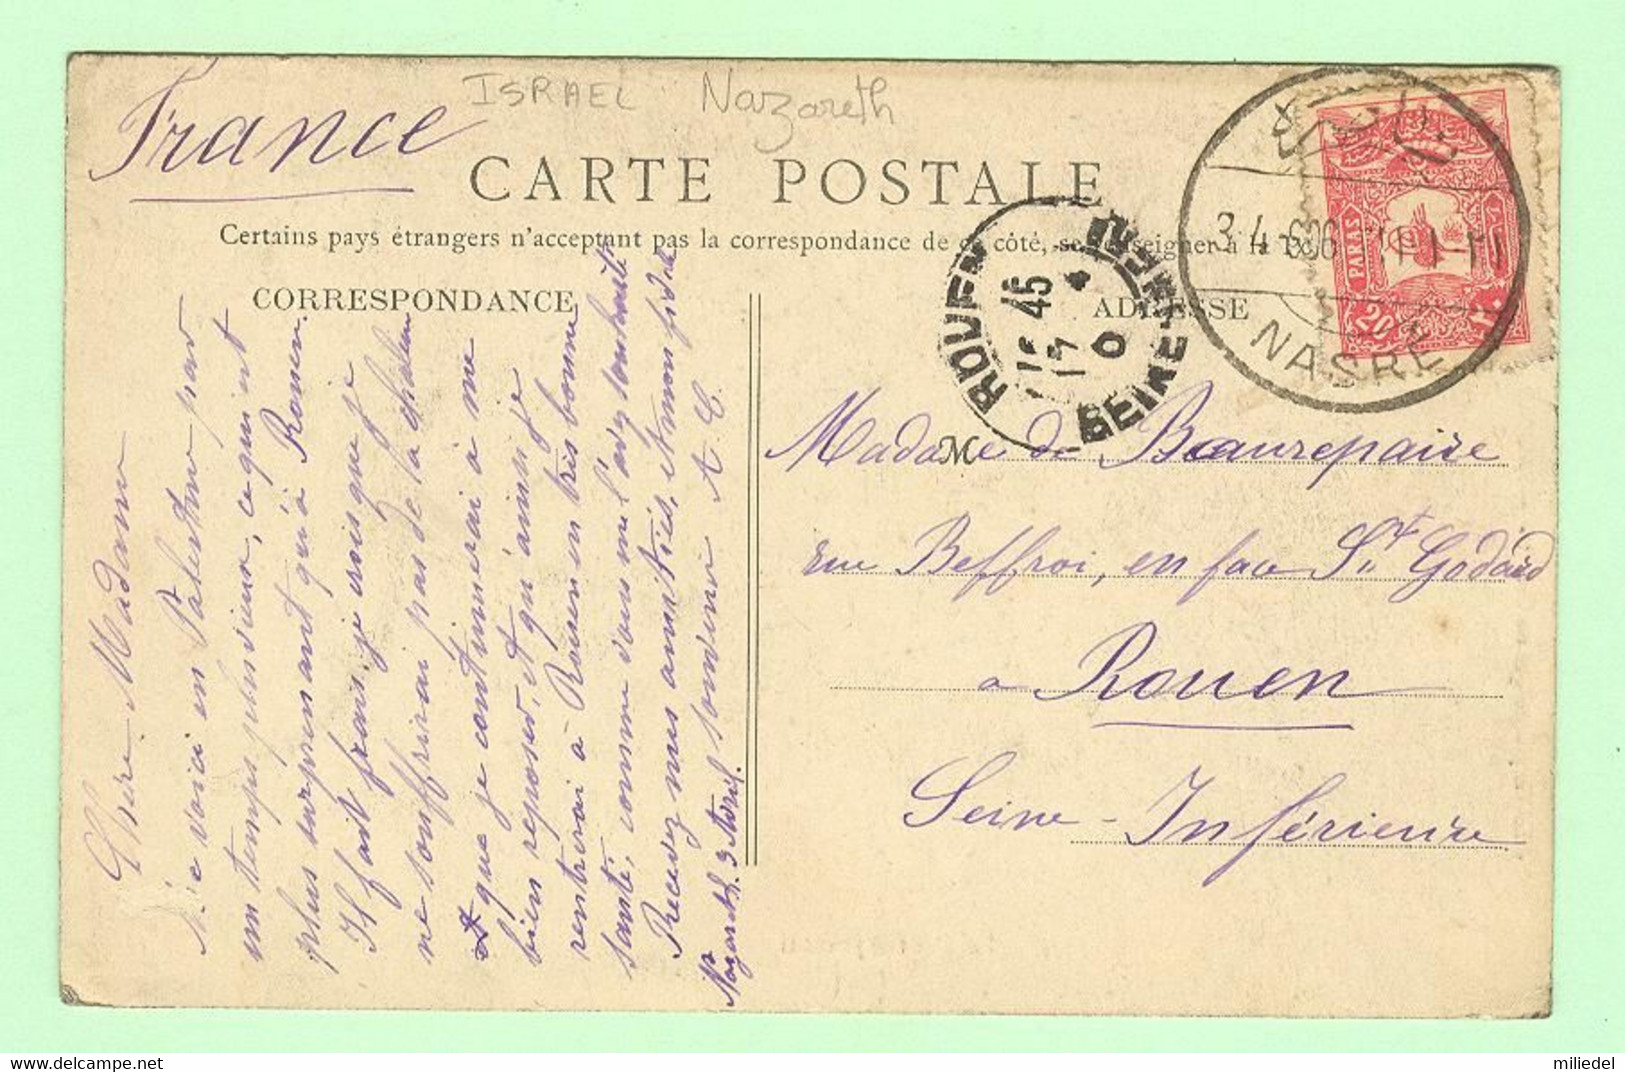 France
ISRAEL Nazareth
CARTE POSTALE
Certains pays étrangers n'acceptent pas la correspondance de ce côté, se renseigner à la
CORRESPONDANCE
ADRESSE
ناصره
3.4.
NASRÉ
20 PARAS ٢٠
ROUEN
15 45
17 4
0
SEINE-INFRE
Madame de Beaurepaire
M
rue Beffroi, en face St Godard
à Rouen
Seine-Inférieure
Chère Madame
Me voici en Palestine par
un temps pluvieux, ce qui est
plus surprenant qu'à Rouen.
Il fait frais, je crois que je
ne souffrirai pas de la chaleur
et que je continuerai à me
bien reposer, et qu'ainsi je
rentrerai à Rouen en très bonne
santé, comme vous me l'avez souhaité
Recevez mes amitiés, et mon fidèle
souvenir A. C.
Nazareth. 3 Avril.
miliedel